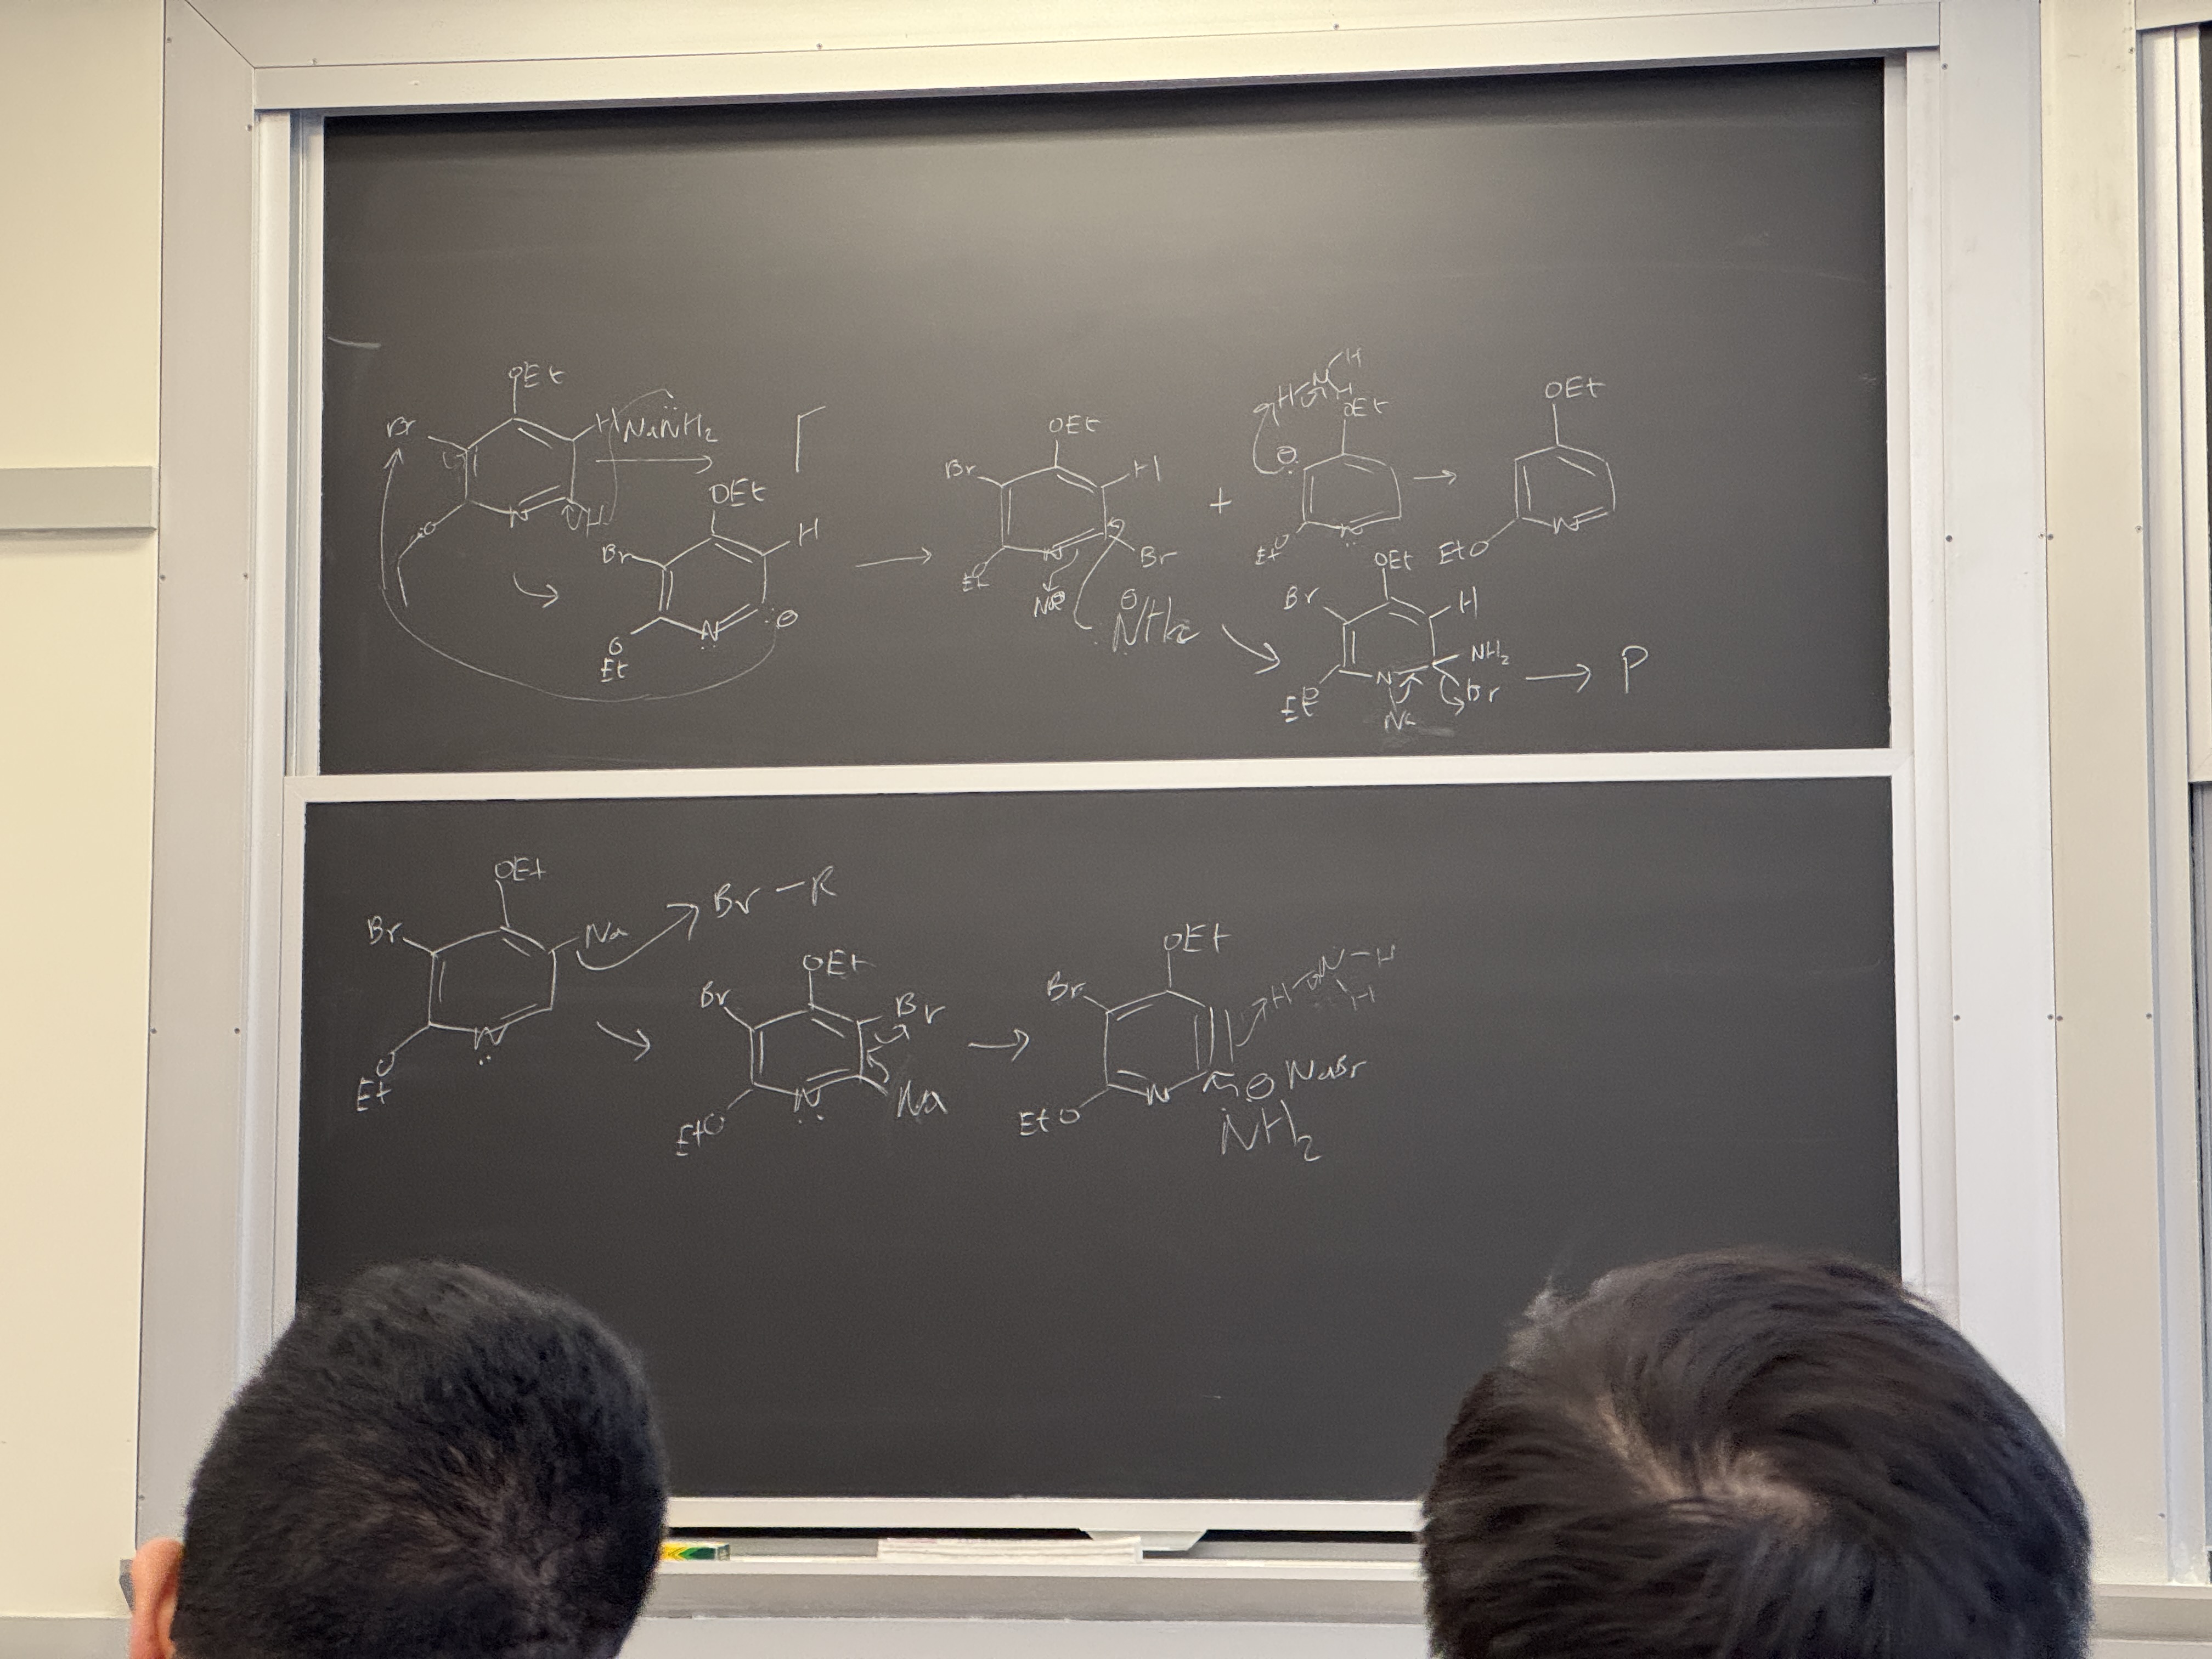 OEt
Br
H
NaNH2
N
H
O
OEt
Br
H
N
O
Et
⊖
OEt
Br
H
N
Br
O
Et
Na⊕
⊖
NH2
+
H
H N
H
OEt
⊖
N
O
Et
OEt
N
EtO
OEt
Br
H
NH2
Br
N
Na
O
Et
P
OEt
Br
Na
Br-R
N
O
Et
OEt
Br
Br
N
Na
EtO
OEt
Br
H N-H
H
N
EtO
⊖ NaBr
NH2